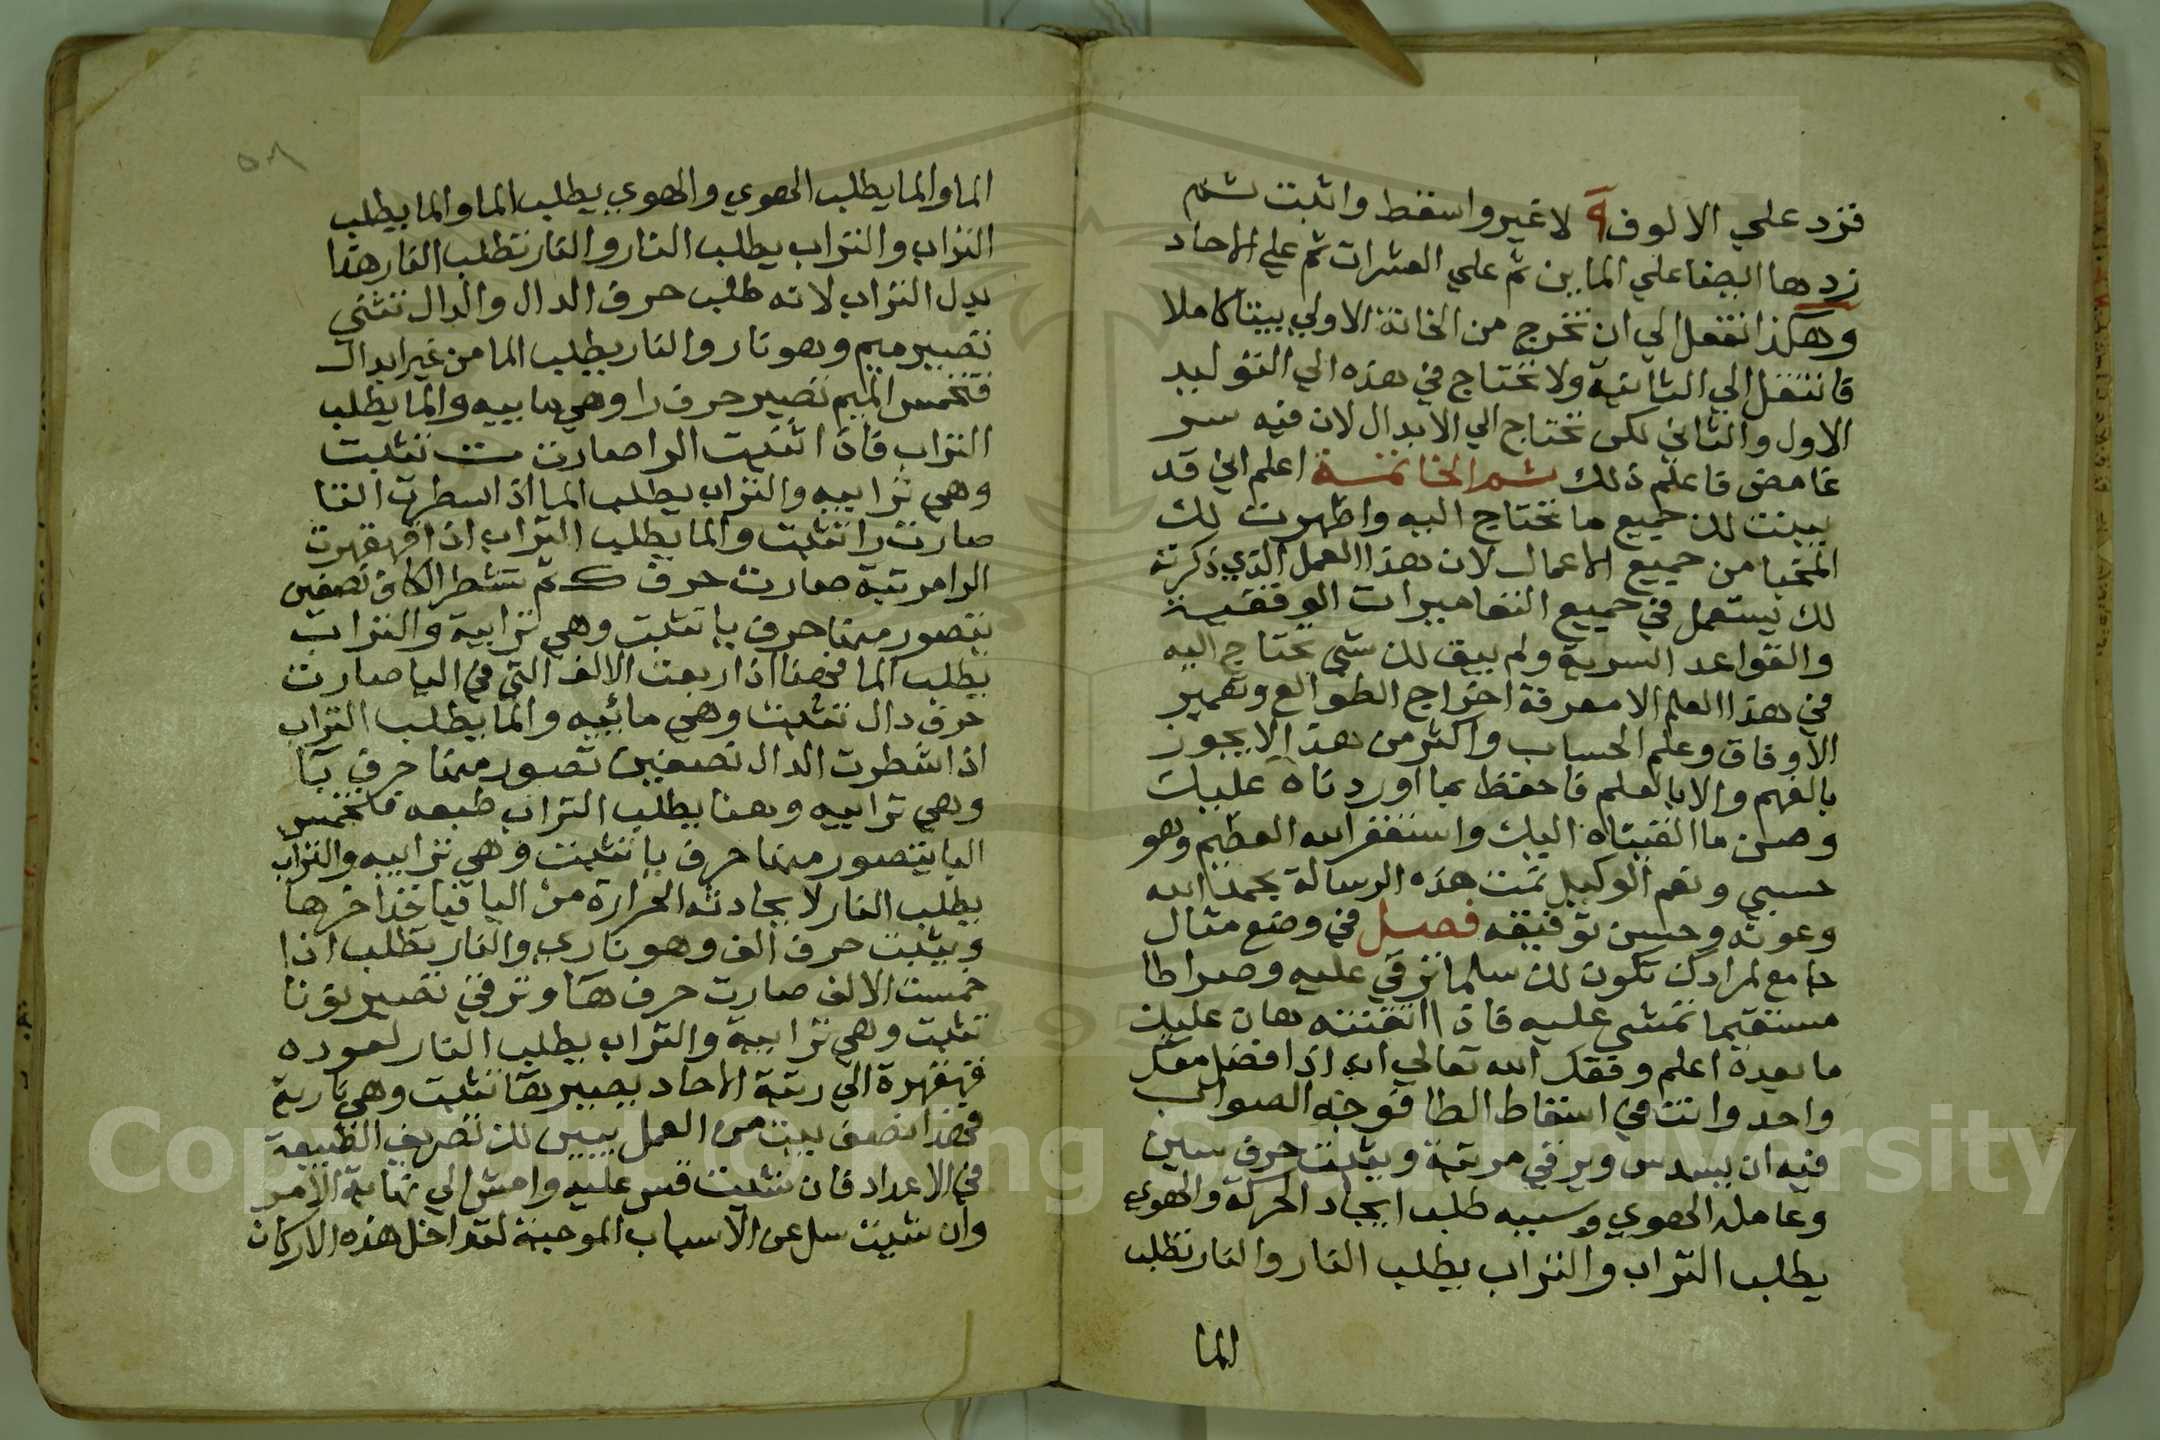 فزد علي الالوف ٩ لا غير واسقط واثبت ثم
زدها ايضا علي المايين ثم علي العشرات ثم علي الاحاد
وهكذا تفعل الي ان تخرج من الخانة الاولي بيتا كاملا
فانتقل الي الثانية ولا تحتاج في هذه الي التوليد
الاول والثاني لكن تحتاج الي الابدال لان فيه سر
غامض فاعلم ذلك ثم الخاتمة اعلم اني قد
بينت لك جميع ما تحتاج اليه واظهرت لك
المخبا من جميع الاعمال لان هذا العمل الذي ذكرته
لك يستعمل في جميع التعاميرات الوفقية
والقواعد السرية ولم يبق لك شي تحتاج اليه
في هذا العلم الا معرفة اخراج الطوالع وتعمير
الاوفاق وعلم الحساب واكثر من هذا لا يجوز
بالفهم والا بالعلم فاحفظ بما اوردناه عليك
وصن ما القيناه اليك واستغفر الله العظيم وهو
حسبي ونعم الوكيل تمت هذه الرسالة بحمد الله
وعونه وحسن توفيقه فصل في وضع مثال
جامع لمرادك تكون لك سلما ترقي عليه وصراطا
مستقيما تمشي عليه فاذا اتقنته هان عليك
ما بعده اعلم وفقك الله تعالي انه اذا فضل معك
واحد وانت في اسقاط الطا فوجه الصواب
فيه ان يسدس ويرقي مرتبة ويثبت حرف سين
وعامله الهوي وسببه طلب ايجاد الحركة والهوي
يطلب التراب والتراب يطلب النار والنار تطلب
الما
٥٨
الما والما يطلب الهوي والهوي يطلب الما والما يطلب
التراب والتراب يطلب النار والنار تطلب النار هذا
بدل التراب لانه طلب حرف الدال والدال تثني
تصير ميم وهو نار والنار يطلب الما من غير ابدال
فتخمس الميم تصير حرف را وهي مابيه والما يطلب
التراب فاذا اثنيت الرا صارت ت تثبت
وهي ترابيه والتراب يطلب الما اذا سطرت التا
صارت را تثبت والما يطلب التراب اذا قهقهرت
الرا مرتبة صارت حرف ك ثم تشطر الكاف نصفين
يتصور منها حرف يا تثبت وهي ترابية والتراب
يطلب الما فهنا اذا ربعت الالف التي في اليا صارت
حرف دال تثبت وهي مائيه والما يطلب التراب
اذا شطرت الدال نصفين تصور منها حرف با
وهي ترابيه وهنا يطلب التراب طبعه فتخمس
البا يتصور منها حرف يا تثبت وهي ترابيه والتراب
يطلب النار لايجادته الحرارة من اليا فياخذ اخرها
ويثبت حرف الف وهو ناري والنار يطلب اذا
خمست الالف صارت حرف ها وترقي تصير نونا
تثبت وهي ترابية والتراب يطلب النار لعوده
قهقهرة الي رتبة الاحاد يصير ها تثبت وهي نارية
فهذا نصف بيت من العمل يبين لك تصريف الطبيعة
في الاعداد فان شيت قس عليه وامش الي نهاية الامر
وان شيت سل عن الاسباب الموجبة لتداخل هذه الاركان
Copyright © King Saud University
1957